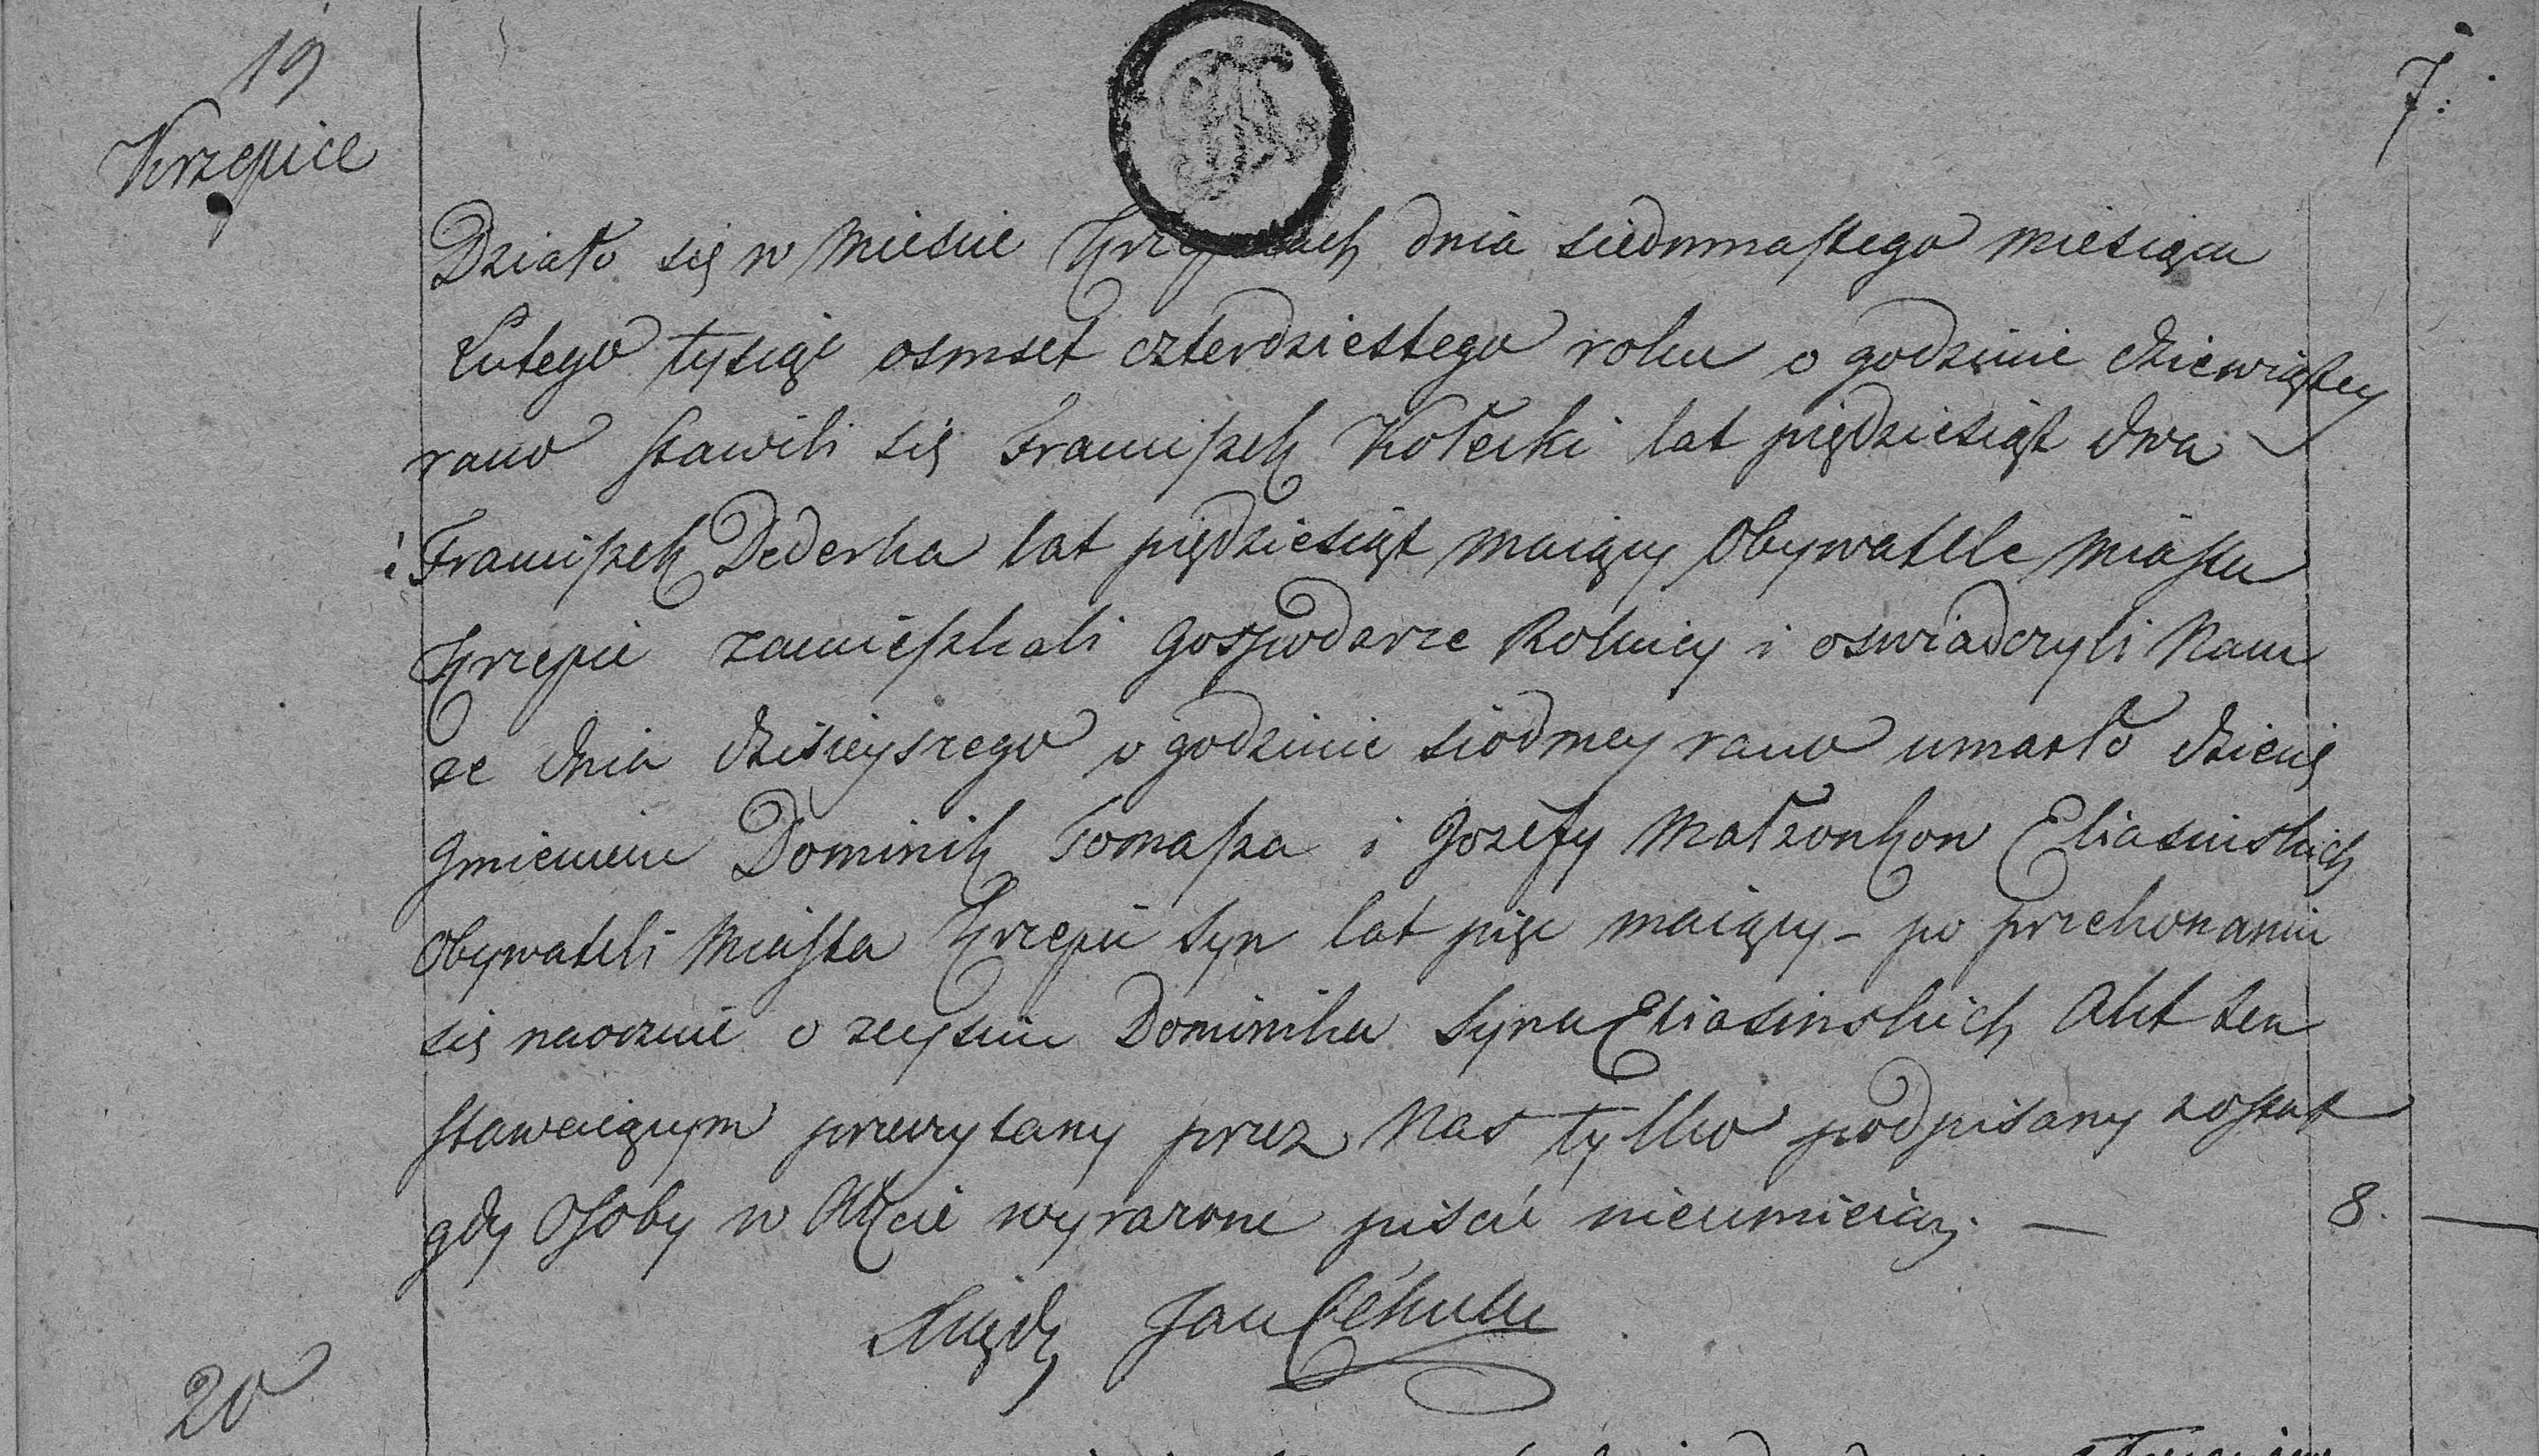 19
Krzepice
7.
Działo się w Mieście Krzepicach dnia siedmnastego miesiąca
Lutego tysiąc osmset czterdziestego roku o godzinie dziewiątey
rano stawili się Franciszek Kotecki lat piędziesiąt dwa
i Franciszek Dederka lat piędziesiąt maiący Obywatele Miasta
Krzepic zamieszkali Gospodarze Rolnicy i oswiadczyli Nam
że dnia dzisieyszego o godzinie siodmey rano umarło dziecię
Jmieniem Dominik Tomasza i Jozefy Małzonkow Eliasinskich
Obywateli Miasta Krzepic syn lat pięc maiący – po przekonaniu
się naocznie o zeysciu Dominika Syna Eliasinskich Akt ten
stawaiącym przeczytany przez Nas tylko podpisany został
gdy Osoby w Akcie wyrazone pisać nieumieią. —
8. —
Xiądz Jan
20